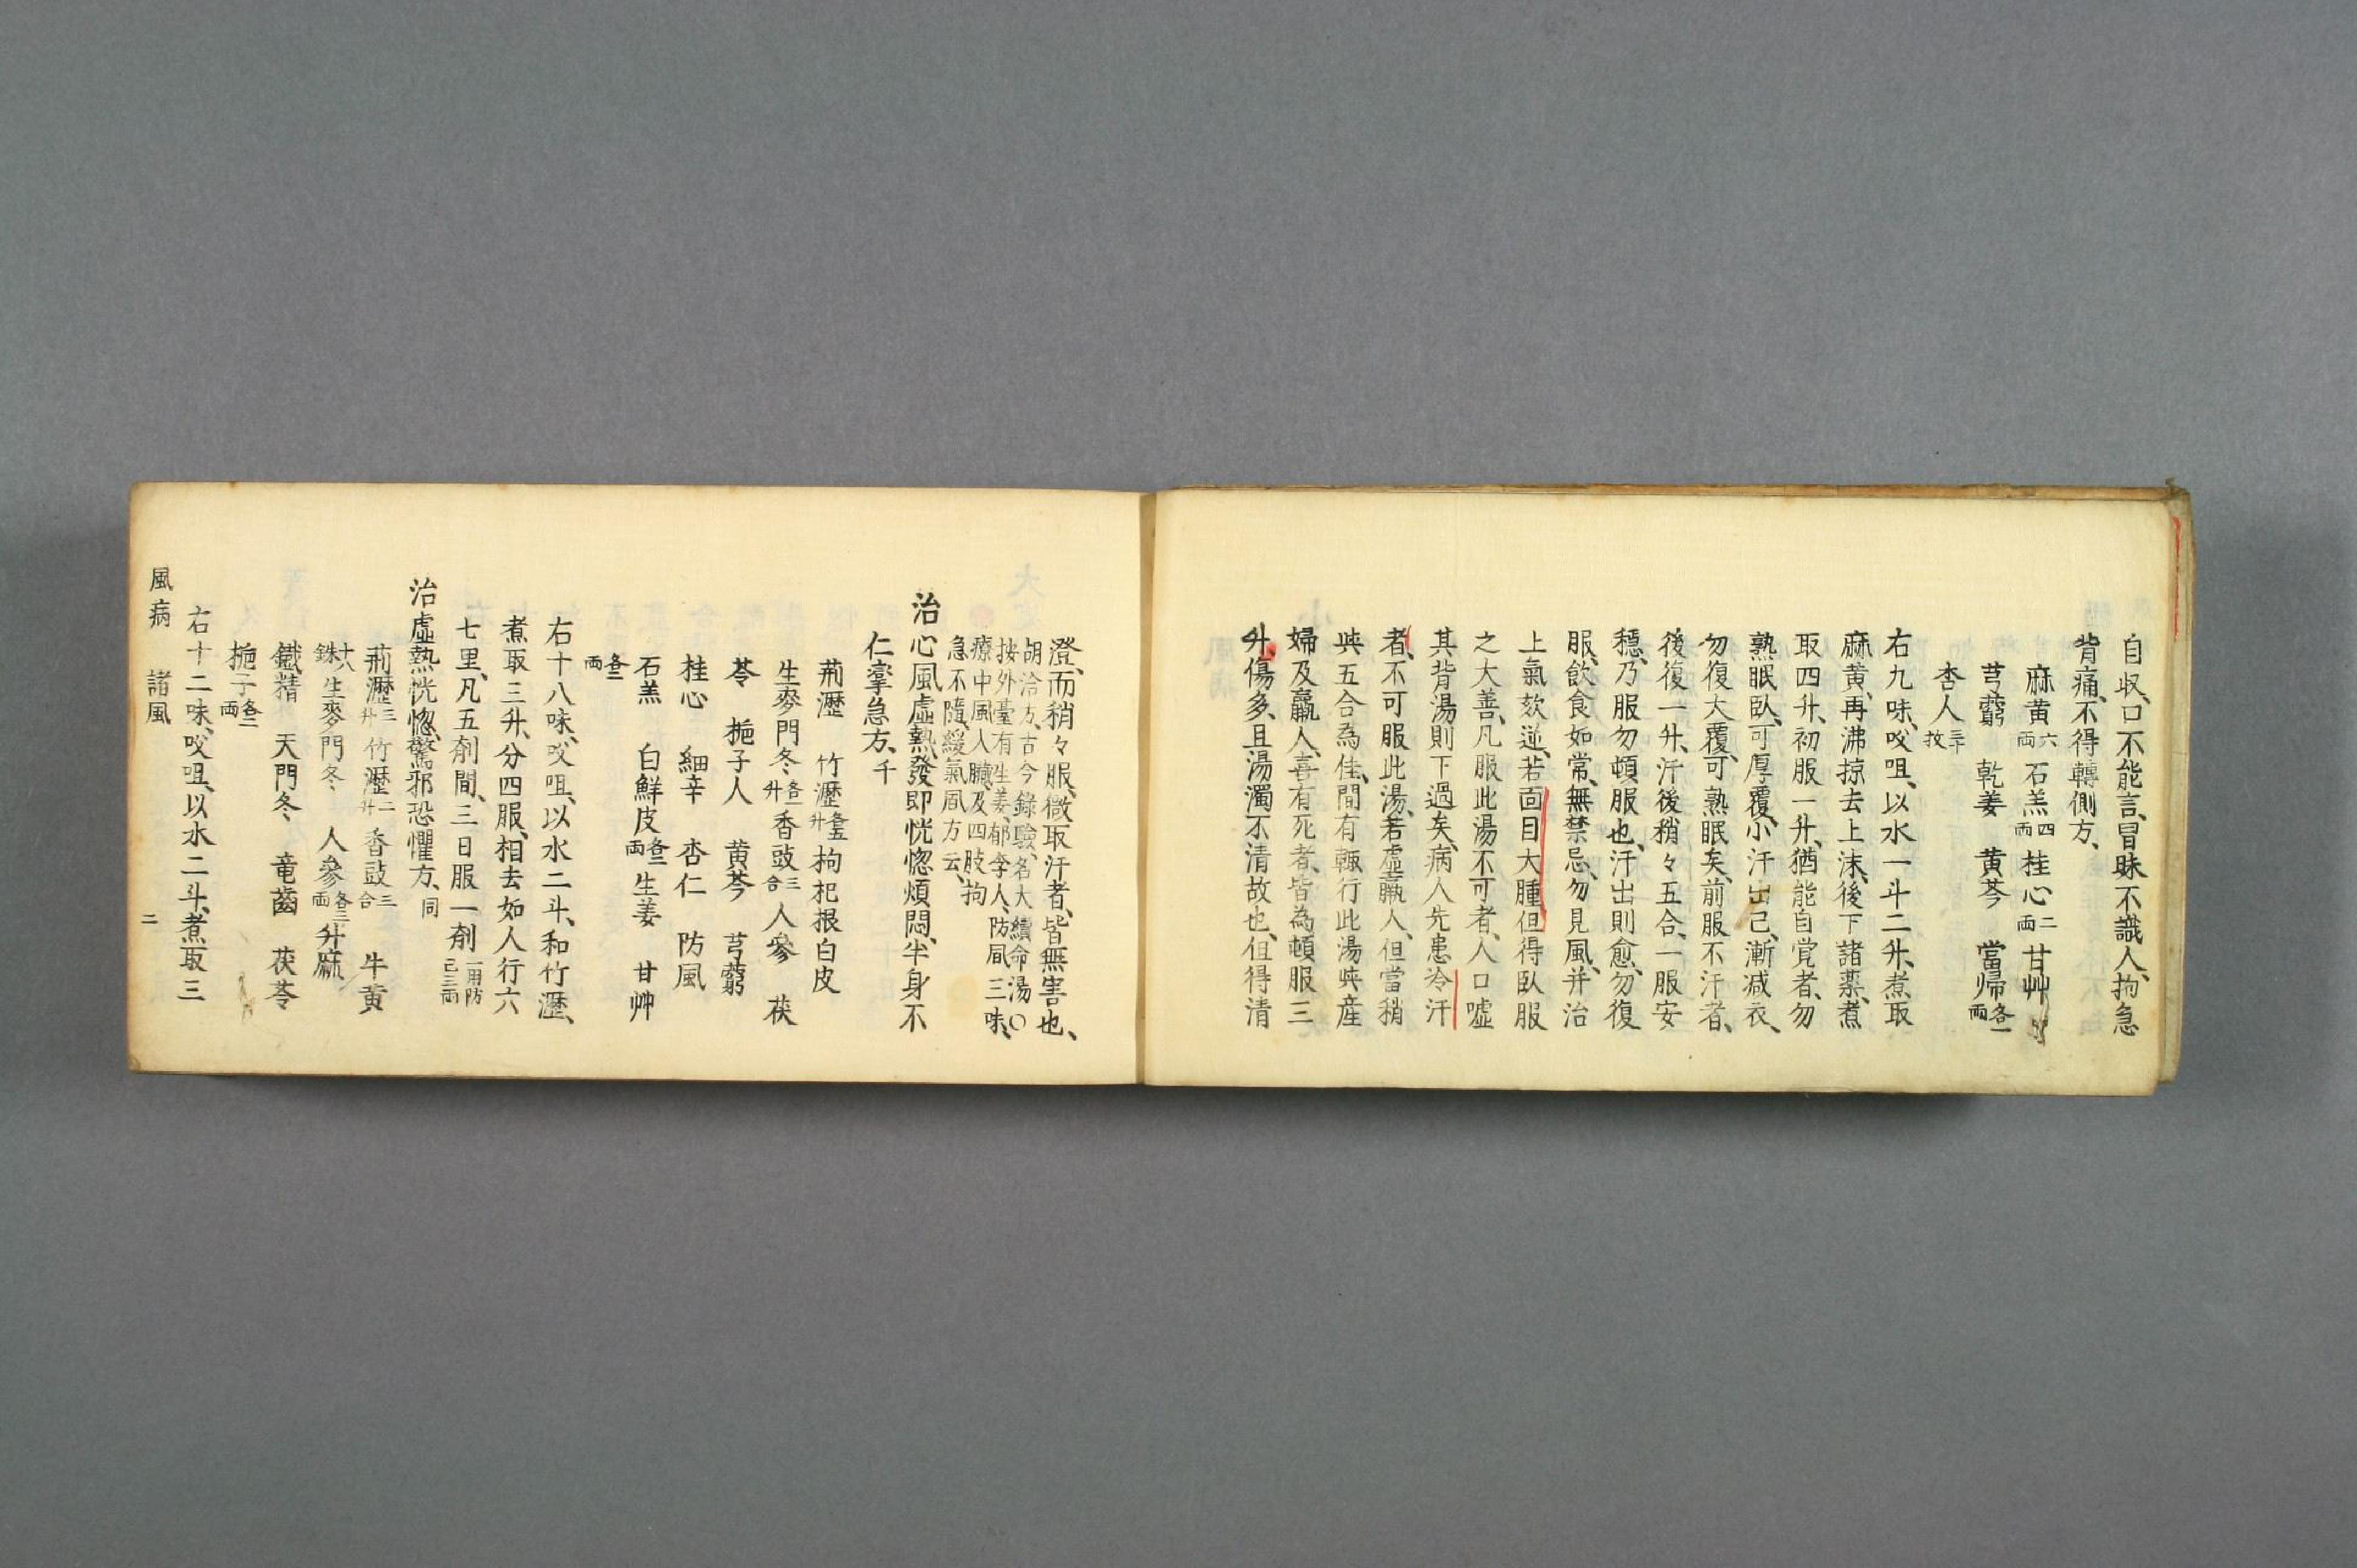 自収、口不能言、冒昧不識人、拘急
背痛、不得轉側方、
麻黄六両 石羔四両 桂心二両 甘艸
芎藭 乾姜 黄芩 當帰各一両
杏人三十枚
右九味、㕮咀、以水一斗二升、煮取
麻黄、再沸掠去上沫、後下諸薬、煮
取四升、初服一升、猶能自覚者、勿
熟眠臥、可厚覆、小汗出已、漸减衣、
勿復大覆、可熟眠矣、前服不汗者、
後復一升、汗後稍々五合、一服安
穏、乃服勿頓服也、汗出則愈、勿復
服、飲食如常、無禁忌、勿見風、并治
上氣欬逆、若面目大腫、但得臥服
之大善、凡服此湯不可者、人口嘘
其背湯則下過矣、病人先患冷汗
者、不可服此湯、若虚羸人、但當稍
與五合為佳、間有輒行此湯與産
婦及羸人、喜有死者、皆為頓服三
升、傷多、且湯濁不清故也、但得清
澄、而稍々服、微取汗者、皆無害也、
胡洽方、古今錄驗、名大續命湯〇
按外臺有生姜、郁李人、防風、三味、
療中風人臓、及四肢拘
急不隨、緩氣風方云、
治心風虚熱、發即恍惚煩悶、半身不
仁攣急方、千
荊瀝 竹瀝各五升 枸杞根白皮
生麥門冬各一升 香豉三合 人參 茯
苓 梔子人 黄芩 芎藭
桂心 細辛 杏仁 防風
石羔 白鮮皮各二両 生姜 甘艸
各二両
右十八味、㕮咀、以水二斗、和竹瀝、
煮取三升、分四服、相去如人行六
七里、凡五剤間、三日服一剤一用防己三両
治虚熱恍惚、驚邪恐懼方、同
荊瀝三升 竹瀝二升 香豉三合 牛黄
十八銖 生麥門冬 人參各三両 升麻
鐵精 天門冬 竜齒 茯苓
梔子各二両
右十二味、㕮咀、以水二斗、煮取三
風病 諸風 二